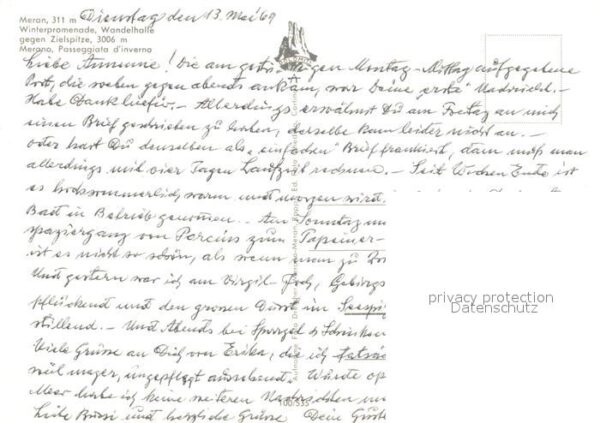 Meran, 311 m
Winterpromenade, Wandelhalle
gegen Zielspitze, 3006 m
Merano, Passeggiata d'inverno
Dienstag den 13. Mai 69
Liebe ! Die am gestrigen Montag-Mittag aufgegebene
Post, die soeben gegen abends ankam, war Deine "erste" Nachricht. -
Habe Dank hiefür. - Allerdings erwähnst Du am Freitag an mich
einen Brief geschrieben zu haben, derselbe kam leider nicht an. -
oder hast Du denselben als "einfachen" Brief frankiert, dann muss man
allerdings mit vier Tagen Laufzeit rechnen. - Seit Wochen Ende ist
es hochsommerlich warm und morgen wird
Bad in Betrieb genommen. - Am Sonntag
spaziergang von Parcins zum Tapeiner-
ist es nicht so schön, als wenn man zu
Und gestern war ich am Vigil-Joch, Gebirgs
pflückend und den grossen Durst im
stillend. - Und Abends bei Spargel & Schinken
Viele Grüsse an Dich von Erika, die ich
weil mager, ungepflegt aussehend. Würde
Mehr habe ich keine weiteren
Liebe Bussi und herzliche Grüsse Dein
100/535
privacy protection
Datenschutz